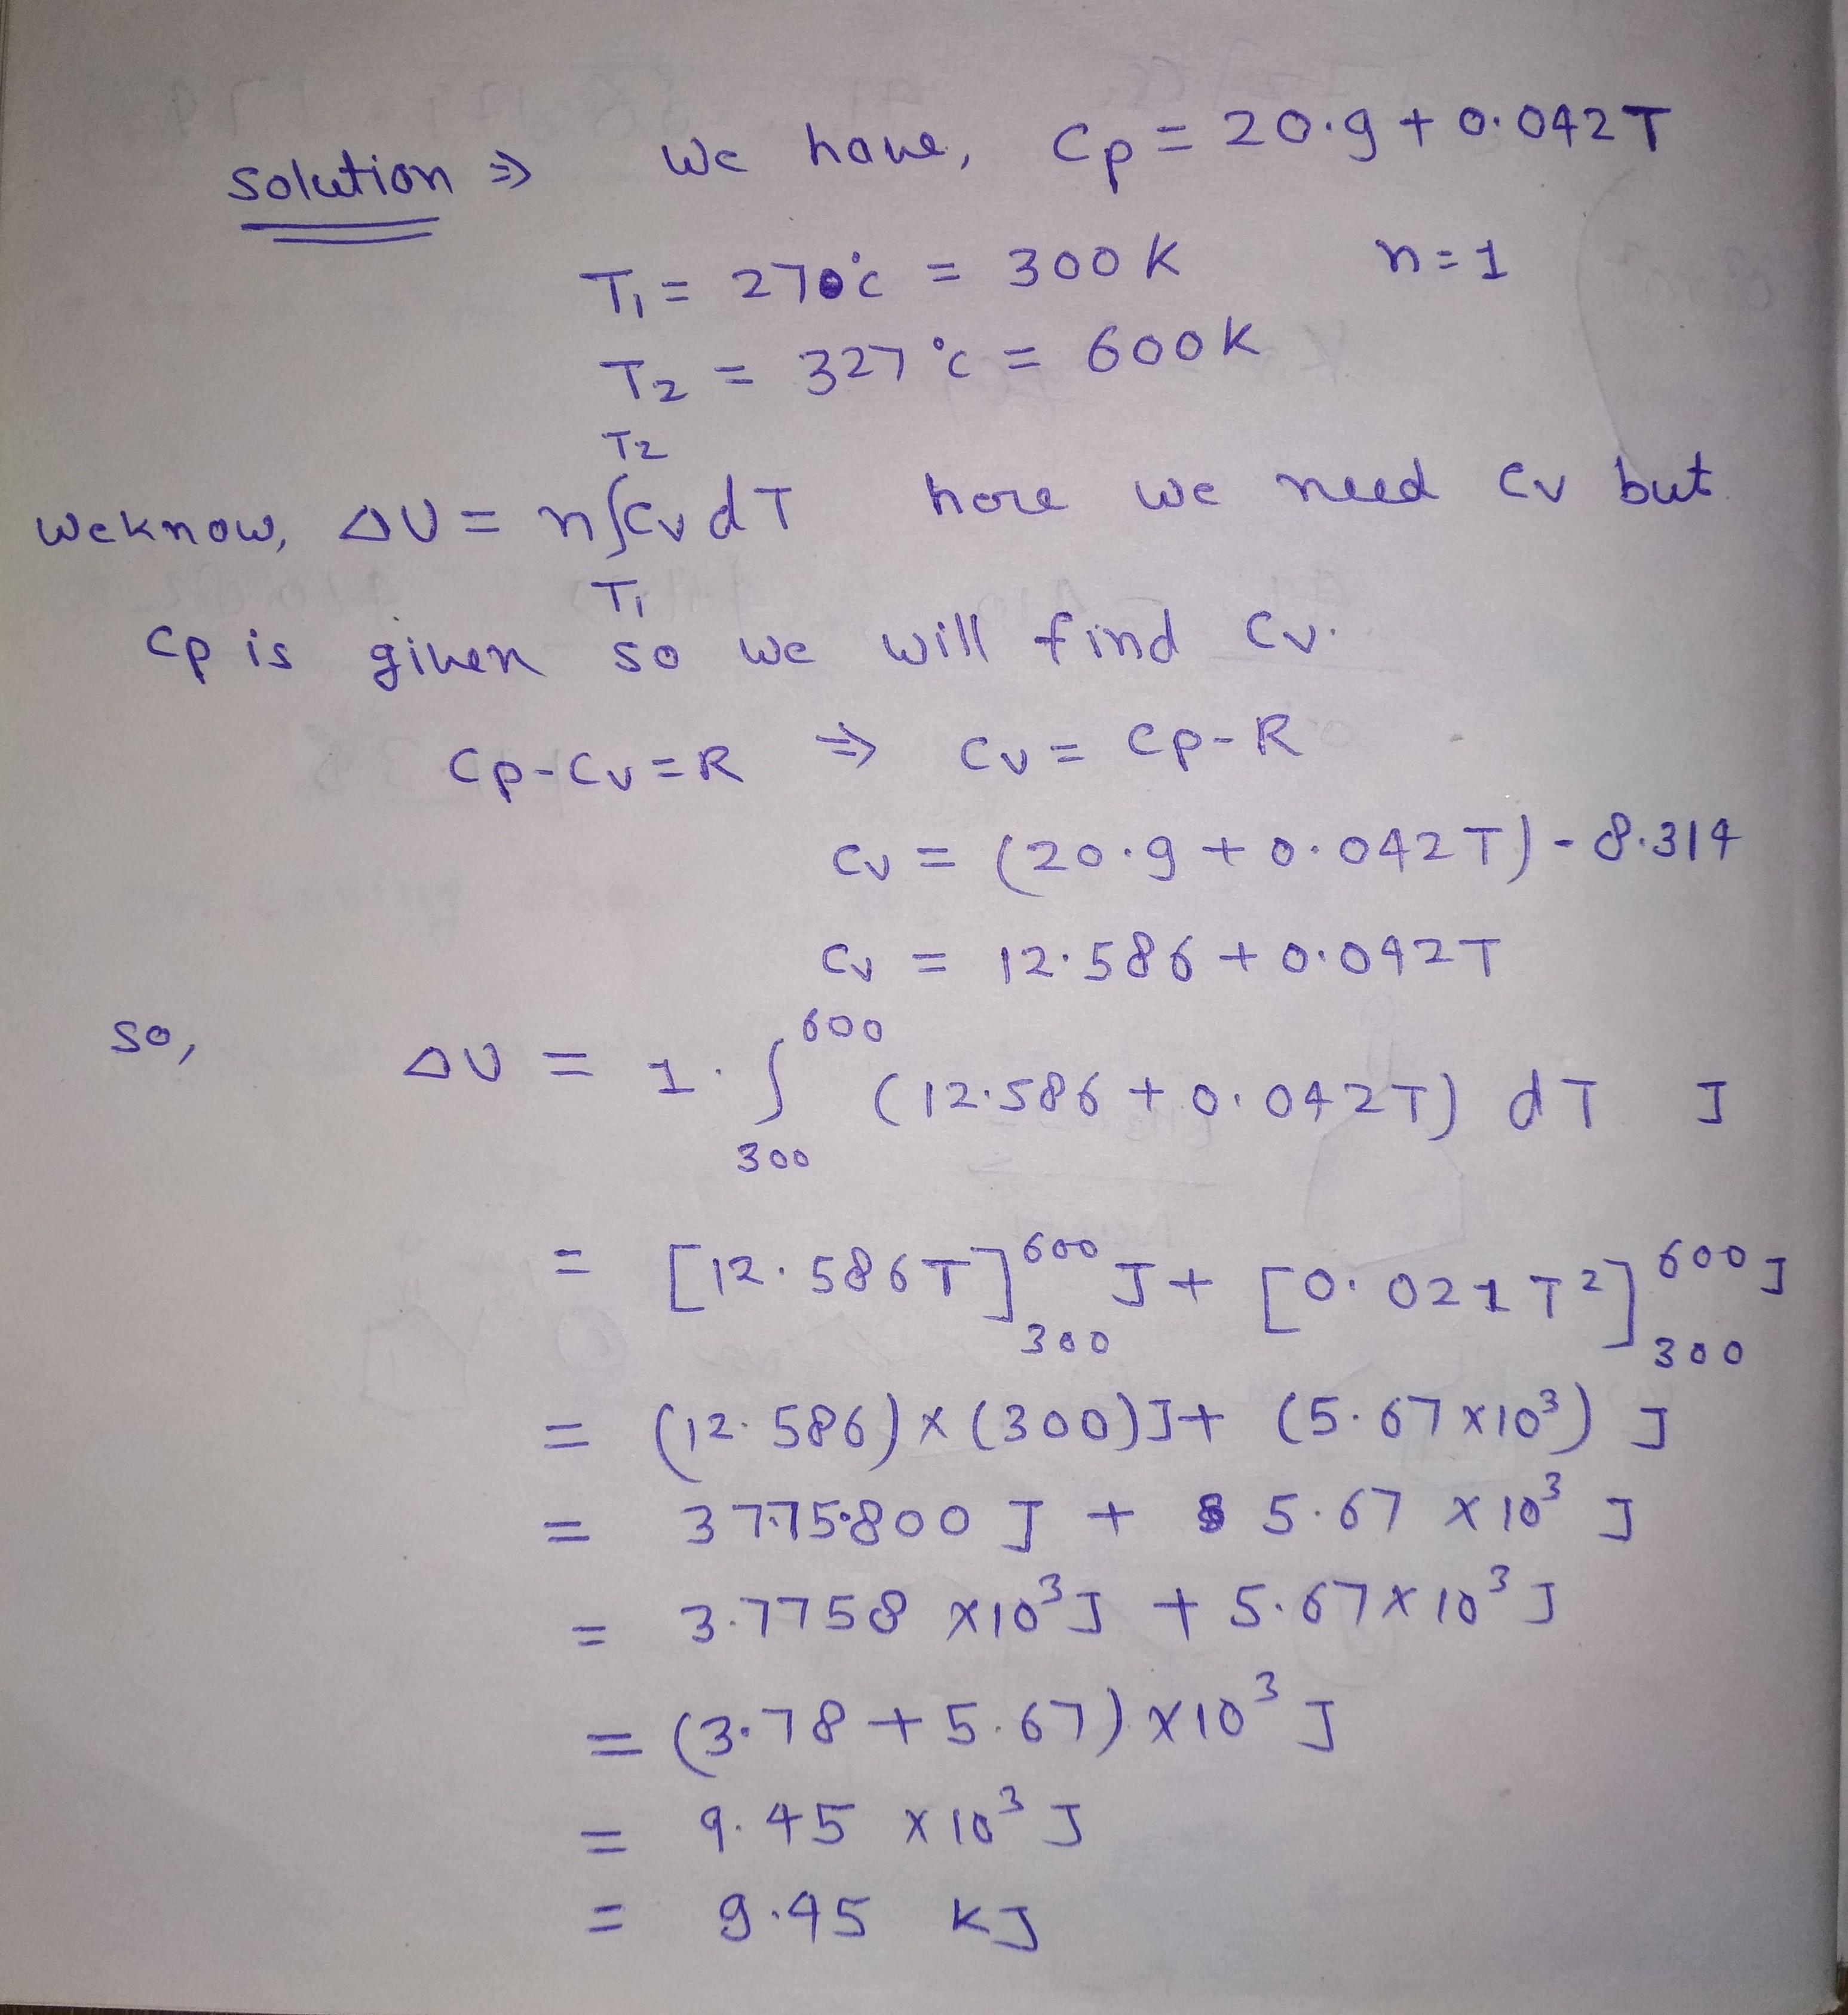 Solution ⇒ We have, Cp = 20.9 + 0.042T
T₁ = 27°C = 300 K n = 1
T₂ = 327 °C = 600K
We know, ΔU = n∫_{T₁}^{T₂} Cv dT here we need Cv but
Cp is given so we will find Cv.
Cp - Cv = R ⇒ Cv = Cp - R
Cv = (20.9 + 0.042T) - 8.314
Cv = 12.586 + 0.042T
so, ΔU = 1. ∫_{300}^{600} (12.586 + 0.042T) dT J
= [12.586T]_{300}^{600} J + [0.021T²]_{300}^{600} J
= (12.586) × (300) J + (5.67 × 10³) J
= 3775.800 J + 5.67 × 10³ J
= 3.7758 × 10³ J + 5.67 × 10³ J
= (3.78 + 5.67) × 10³ J
= 9.45 × 10³ J
= 9.45 KJ